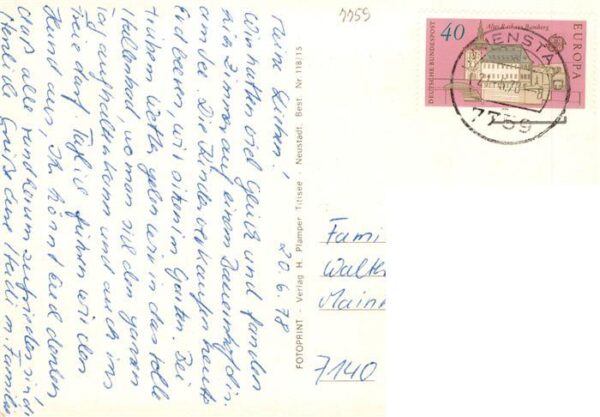 7759
Meine Lieben! 20.6.78
Wir hatten viel Glück und fanden
ein Zimmer auf einem Bauernhof dir.
am See. Die Kinder verkaufen heute
Erdbeeren, wir sitzen im Garten. Bei
trübem Wetter gehen wir in das tolle
Hallenbad, wo man sich den ganzen
Tag aufhalten kann und auch ins
Freie darf. Täglich führen wir den
Hund aus, Ihr könnt Euch denken
daß alle rundherum zufrieden sind.
Herzliche Grüße Eure Heidi m. Familie
FOTOPRINT - Verlag H. Plamper Titisee - Neustadt. Best. Nr 118/15
DEUTSCHE BUNDESPOST
40
Altes Rathaus Bamberg
EUROPA
7759
Fami
Walte
Main
7140